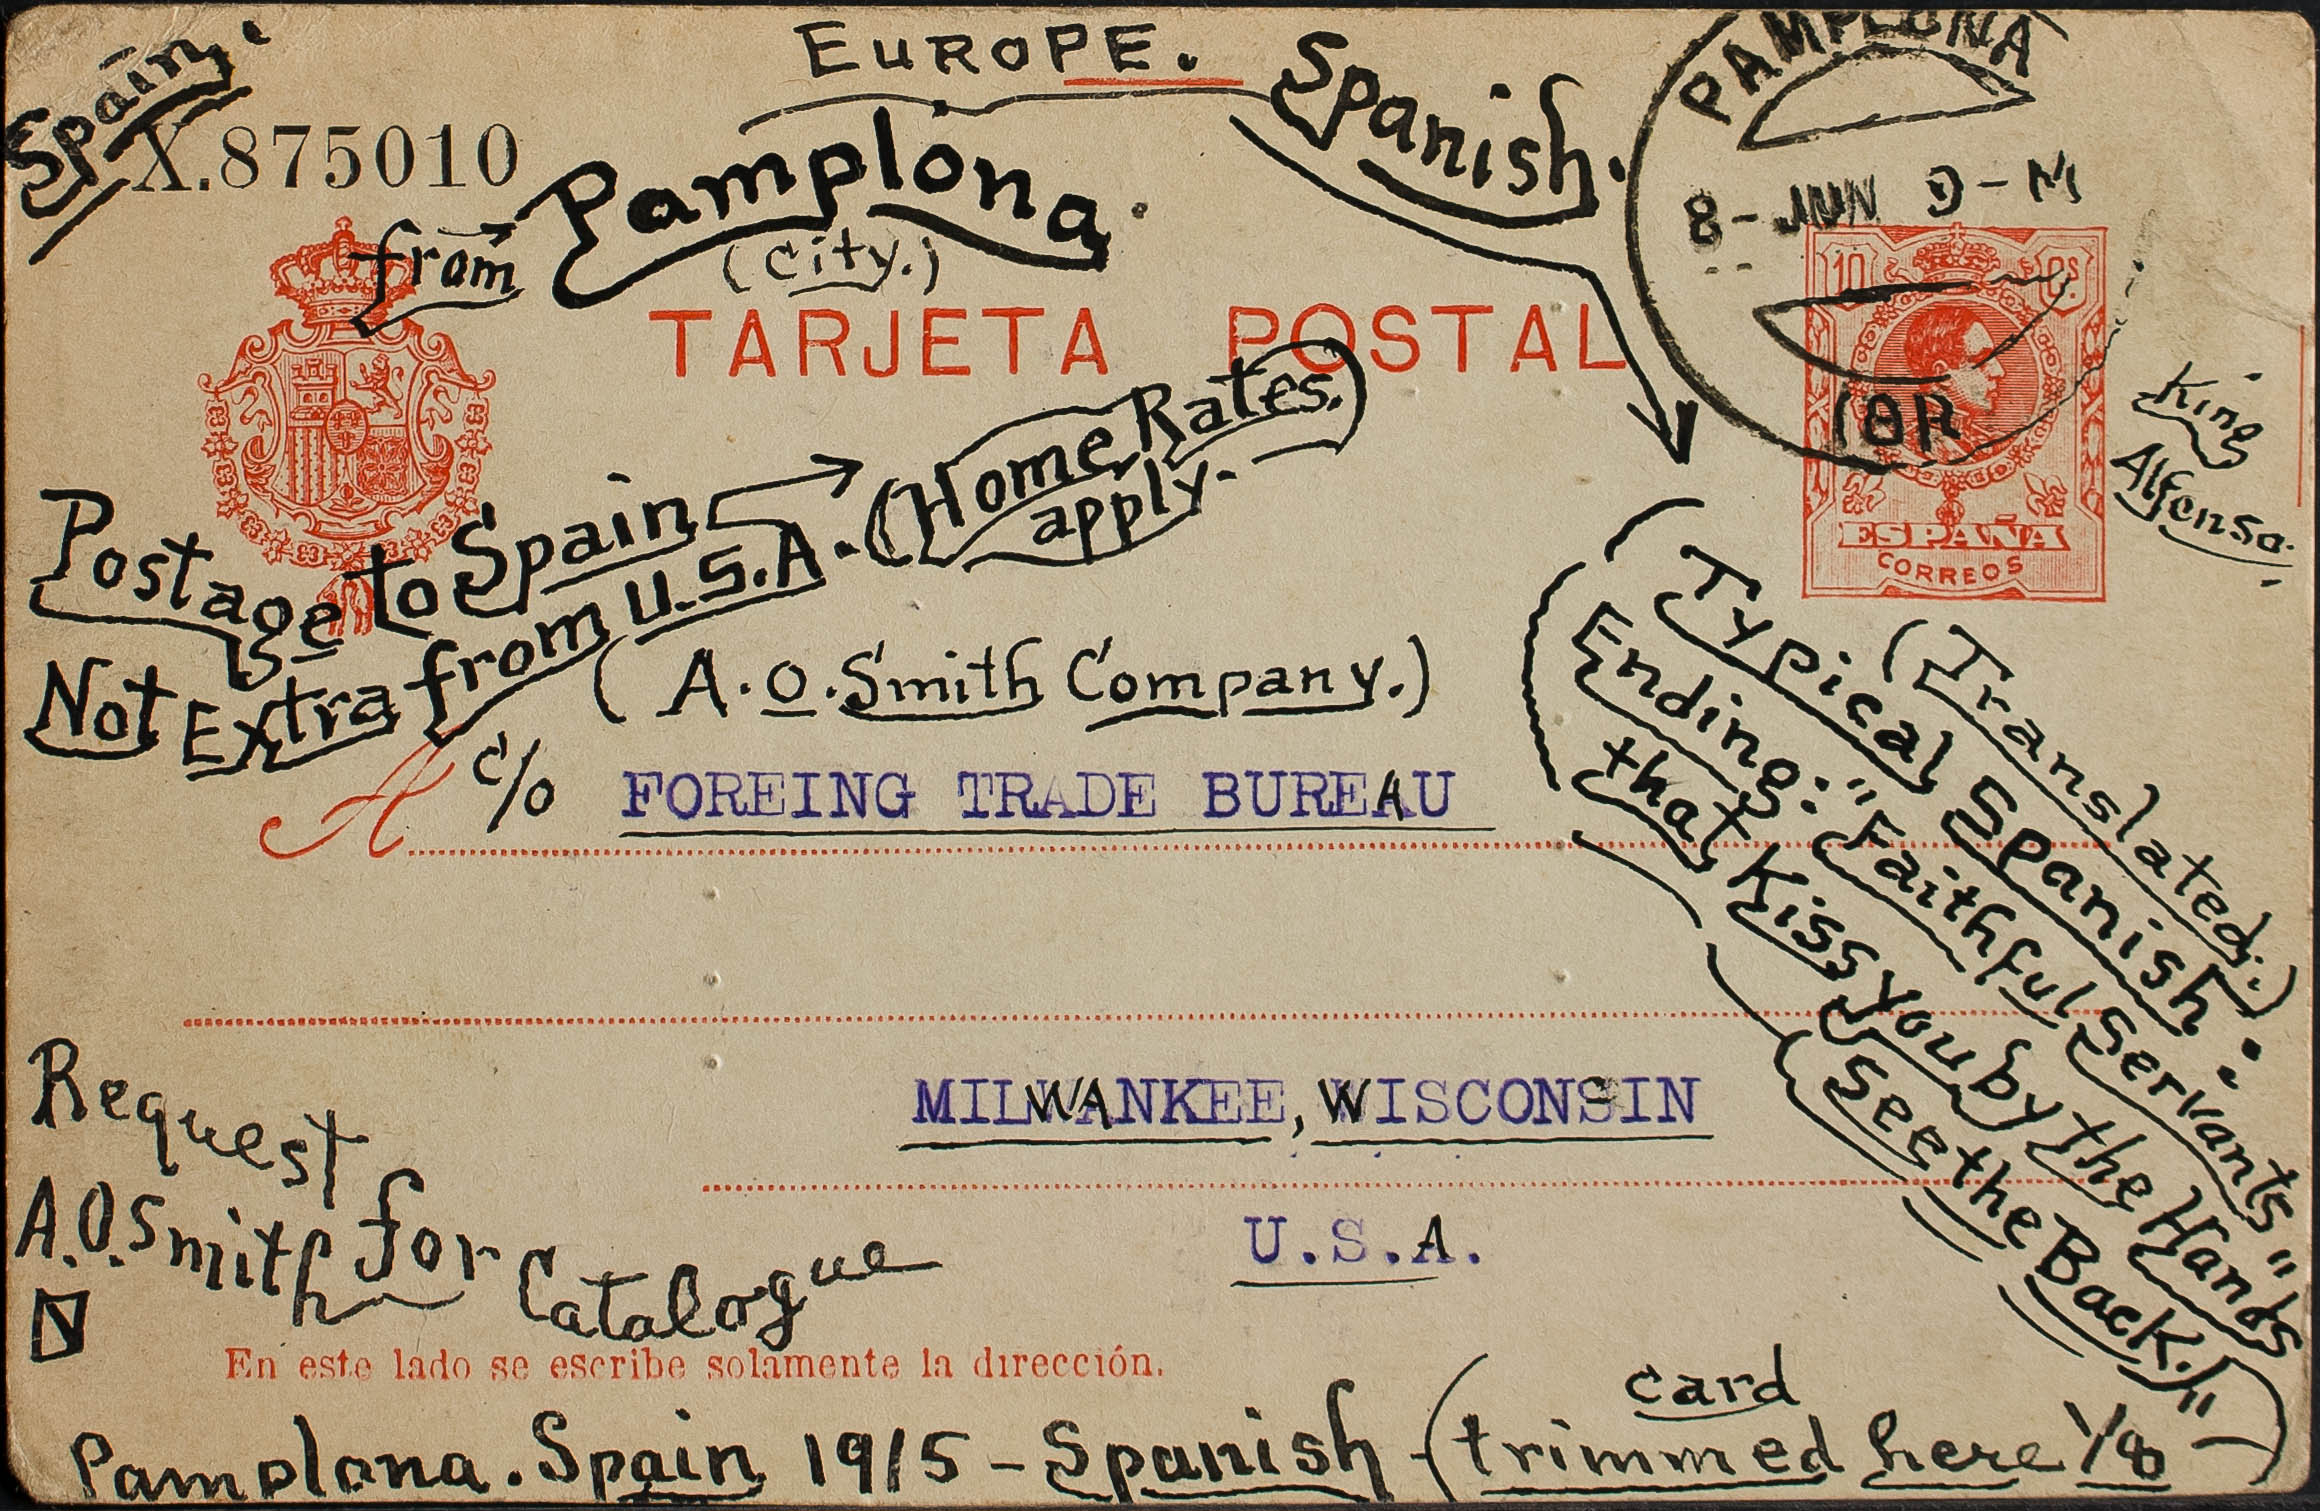 Spain.
EUROPE.
Spanish.
PAMPLONA
8-JUN 9-M
X.875010
from Pamplona.
(City.)
TARJETA POSTAL
10 Cs.
ESPAÑA
CORREOS
King
Alfonso.
Postage to Spain
Not Extra from U.S.A. (Home Rates.)
apply.
(A.O. Smith Company.)
A c/o FOREING TRADE BUREAU
MILWANKEE, WISCONSIN
U.S.A.
(Translated:)
(Typical Spanish:
Ending: "Faithful Servants"
that Kiss you by the Hands"
(See the Back.)
Request
A.O. Smith for Catalogue
En este lado se escribe solamente la dirección.
Pamplona. Spain 1915 - Spanish (card trimmed here 1/8)